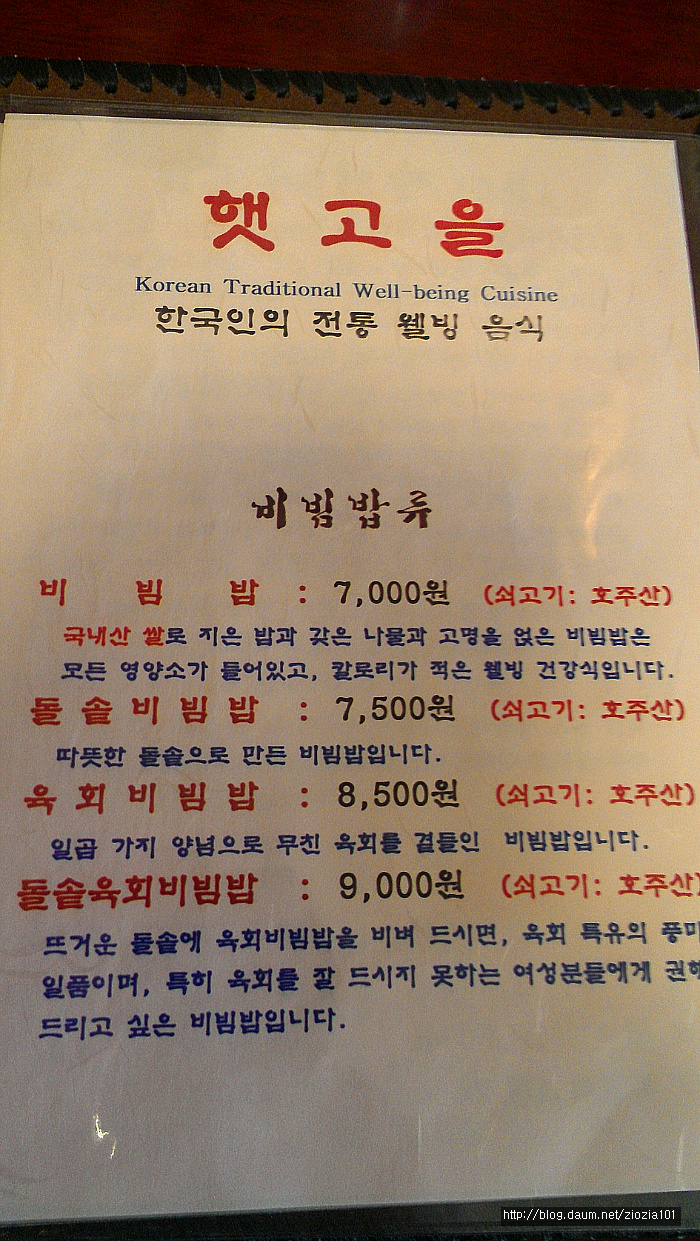 햇고을
Korean Traditional Well-being Cuisine
한국인의 전통 웰빙 음식
비빔밥류
비 빔 밥 : 7,000원 (쇠고기: 호주산)
국내산 쌀로 지은 밥과 갖은 나물과 고명을 얹은 비빔밥은
모든 영양소가 들어있고, 칼로리가 적은 웰빙 건강식입니다.
돌솥비빔밥 : 7,500원 (쇠고기: 호주산)
따뜻한 돌솥으로 만든 비빔밥입니다.
육회비빔밥 : 8,500원 (쇠고기: 호주산)
일곱 가지 양념으로 무친 육회를 곁들인 비빔밥입니다.
돌솥육회비빔밥 : 9,000원 (쇠고기: 호주산)
뜨거운 돌솥에 육회비빔밥을 비벼 드시면, 육회 특유의 풍미
일품이며, 특히 육회를 잘 드시지 못하는 여성분들에게 권해
드리고 싶은 비빔밥입니다.
http://blog.daum.net/ziozia101